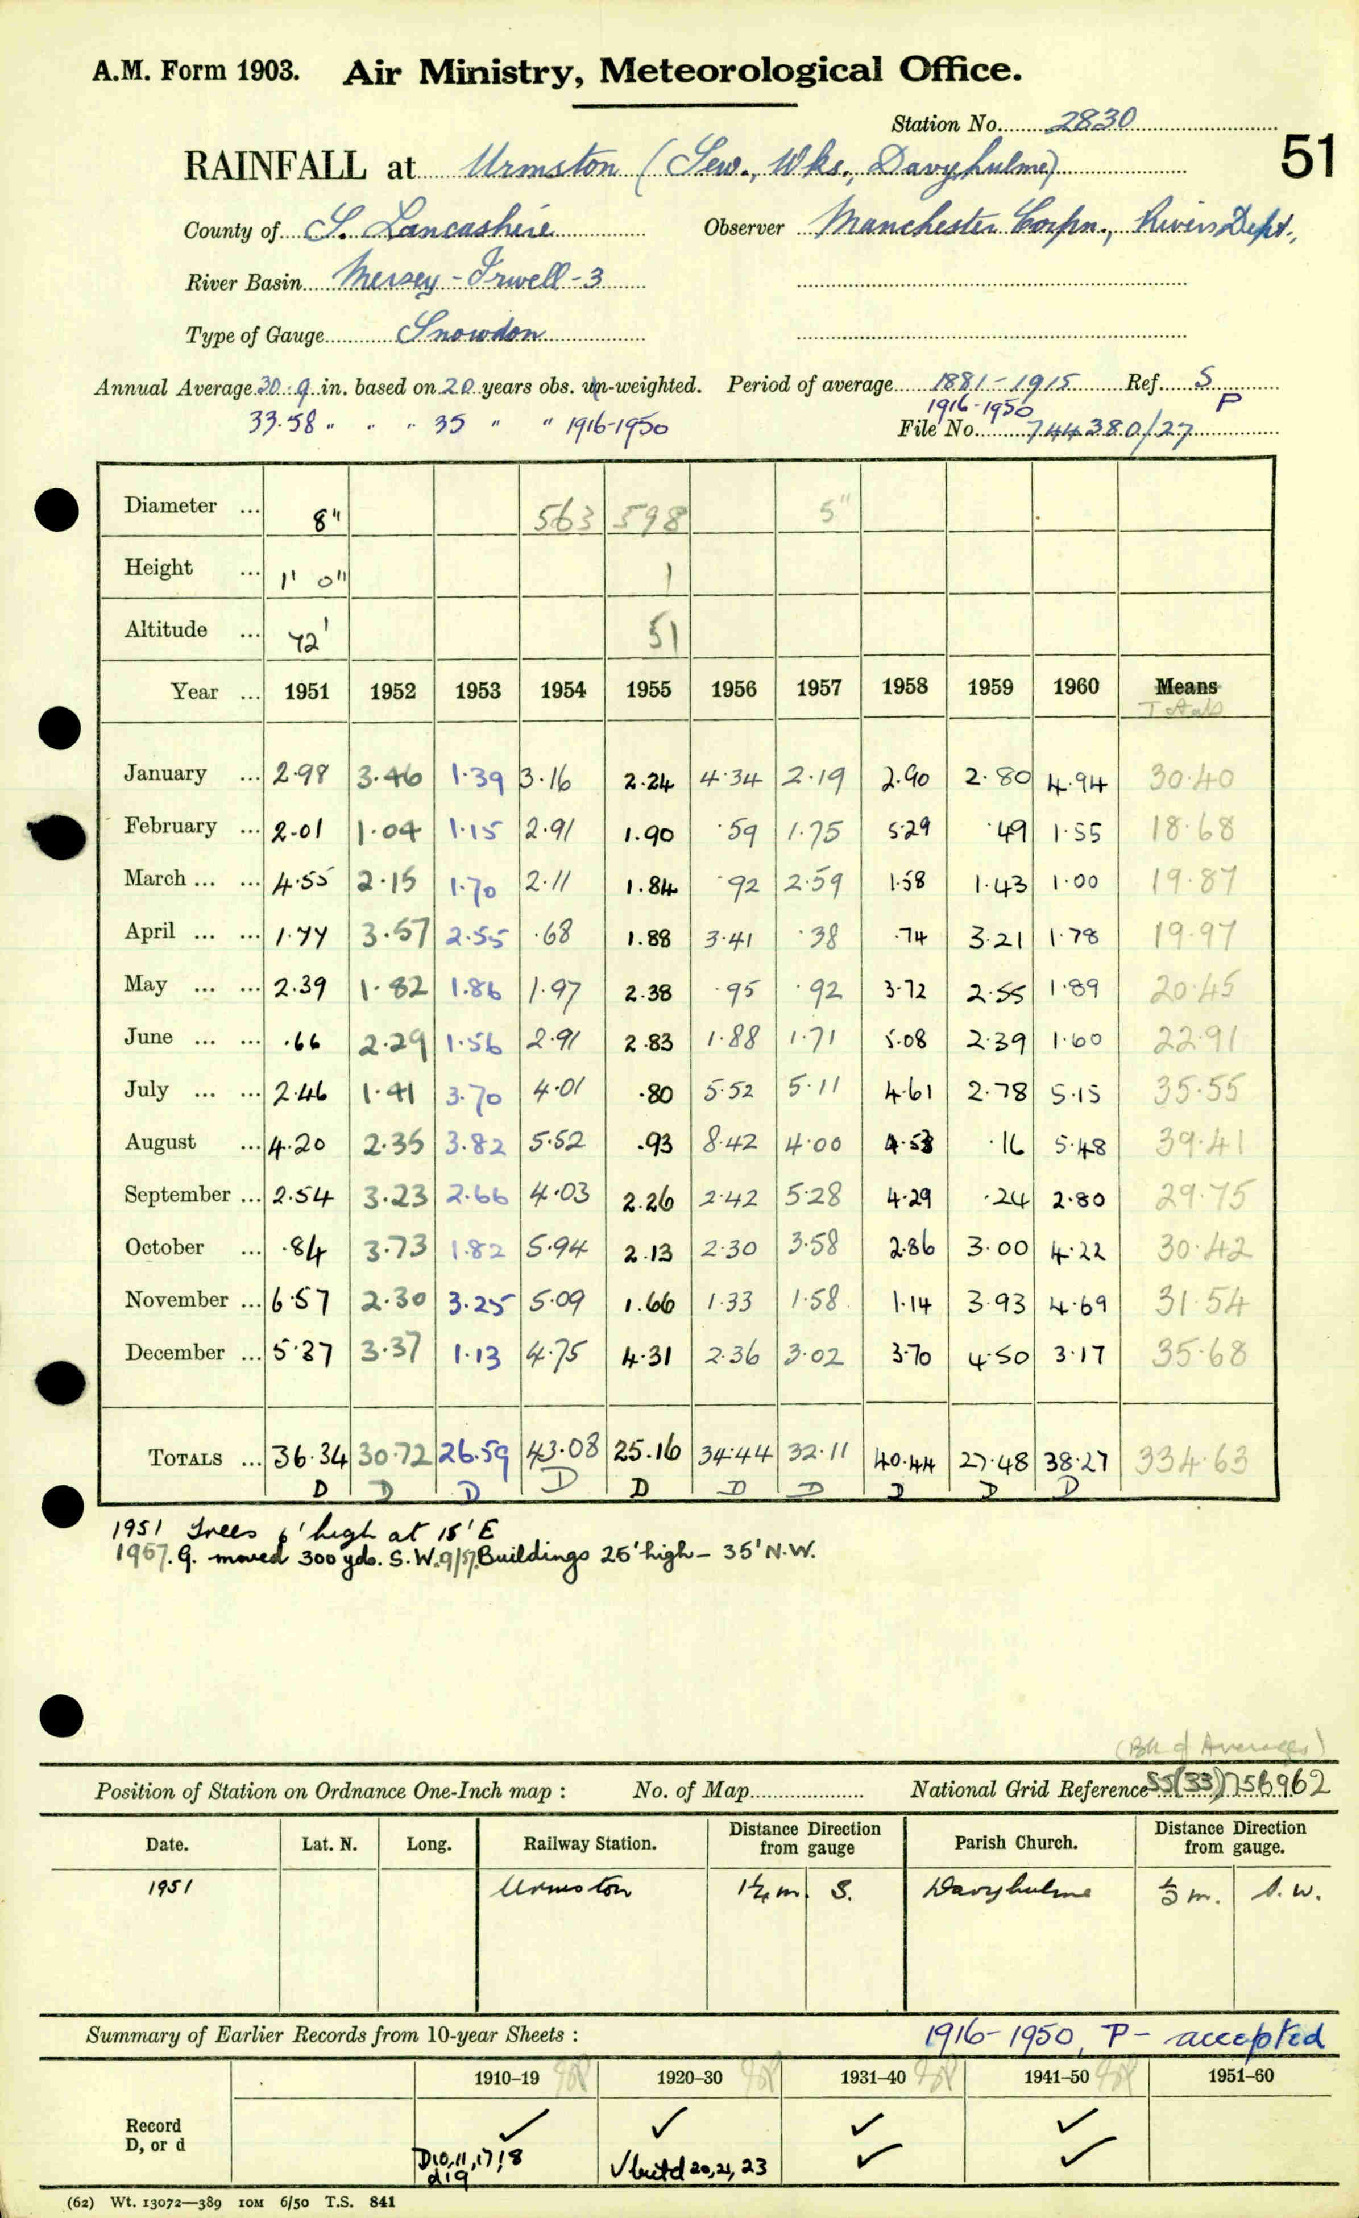 A.M. Form 1903. Air Ministry, Meteorological Office.
Station No. 2830
51
RAINFALL at Urmston (Sew., Wks., Davyhulme)
County of S. Lancashire Observer Manchester Corpn., Rivers Dept.,
River Basin Mersey - Irwell - 3
Type of Gauge Snowdon
Annual Average 30.9 in. based on 20 years obs. un-weighted. Period of average 1881-1915 Ref. S
1916-1950 P
33.58 " " " 35 " " 1916-1950
File No. 744380/27
Diameter ... 8" 563 598 5"
Height ... 1' 0" 1
Altitude ... 72' 51
Year ... 1951 1952 1953 1954 1955 1956 1957 1958 1959 1960 Means
Totals
January ... 2.98 3.46 1.39 3.16 2.24 4.34 2.19 2.90 2.80 4.94 30.40
February ... 2.01 1.04 1.15 2.91 1.90 .59 1.75 5.29 .49 1.55 18.68
March ... ... 4.55 2.15 1.70 2.11 1.84 .92 2.59 1.58 1.43 1.00 19.87
April ... ... 1.77 3.57 2.55 .68 1.88 3.41 .38 .74 3.21 1.78 19.97
May ... ... 2.39 1.82 1.86 1.97 2.38 .95 .92 3.72 2.55 1.89 20.45
June ... ... .66 2.29 1.56 2.91 2.83 1.88 1.71 5.08 2.39 1.60 22.91
July ... ... 2.46 1.41 3.70 4.01 .80 5.52 5.11 4.61 2.78 5.15 35.55
August ... 4.20 2.35 3.82 5.52 .93 8.42 4.00 4.53 .16 5.48 39.41
September ... 2.54 3.23 2.66 4.03 2.26 2.42 5.28 4.29 .24 2.80 29.75
October ... .84 3.73 1.82 5.94 2.13 2.30 3.58 2.86 3.00 4.22 30.42
November ... 6.57 2.30 3.25 5.09 1.66 1.33 1.58 1.14 3.93 4.69 31.54
December ... 5.37 3.37 1.13 4.75 4.31 2.36 3.02 3.70 4.50 3.17 35.68
TOTALS ... 36.34 30.72 26.59 43.08 25.16 34.44 32.11 40.44 27.48 38.27 334.63
D D D D D D D D D D
1951 Trees 6' high at 15' E
1957. G. moved 300 yds. S.W. 9/57. Buildings 25' high - 35' N.W.
(Bk of Averages)
Position of Station on Ordnance One-Inch map : No. of Map National Grid Reference SJ(33)756962
Date. Lat. N. Long. Railway Station. Distance from Direction gauge Parish Church. Distance from Direction gauge.
1951 Urmston 1¼ m. S. Davyhulme ⅓ m. S.W.
Summary of Earlier Records from 10-year Sheets : 1916-1950, P - accepted
1910–19 1920–30 1931–40 1941–50 1951–60
Record ✓ ✓ ✓ ✓
D, or d
D10,11,17,18 ✓ but d 20,21,23 ✓ ✓
d19
(62) Wt. 13072—389 10M 6/50 T.S. 841